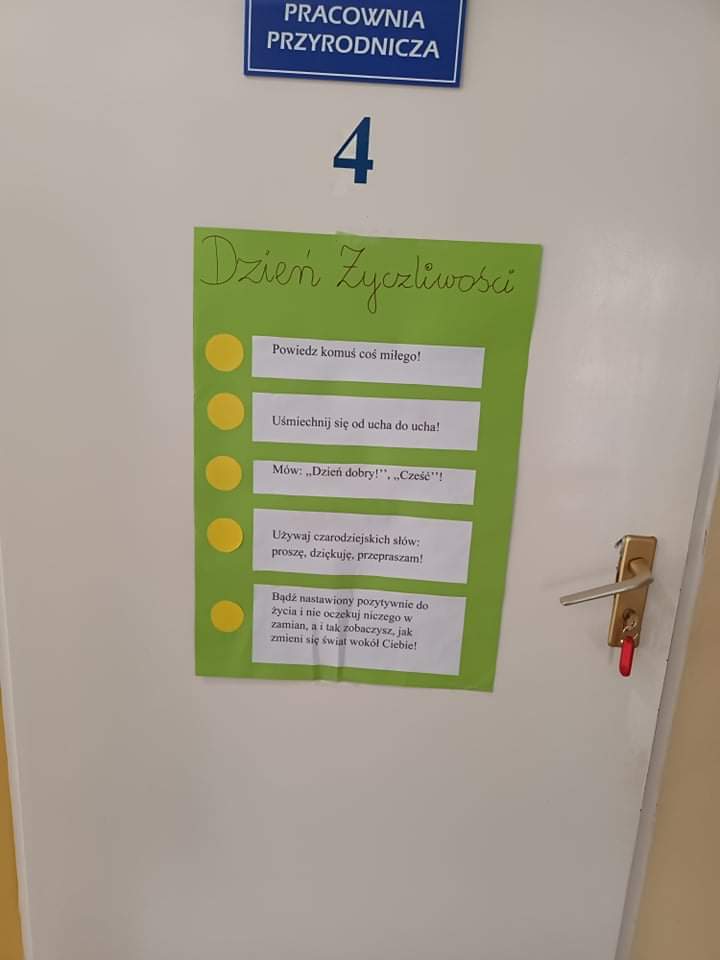 PRACOWNIA
PRZYRODNICZA
4
Dzień Życzliwości
Powiedz komuś coś miłego!
Uśmiechnij się od ucha do ucha!
Mów: ,,Dzień dobry!’’, ,,Cześć’’!
Używaj czarodziejskich słów:
proszę, dziękuję, przepraszam!
Bądź nastawiony pozytywnie do
życia i nie oczekuj niczego w
zamian, a i tak zobaczysz, jak
zmieni się świat wokół Ciebie!